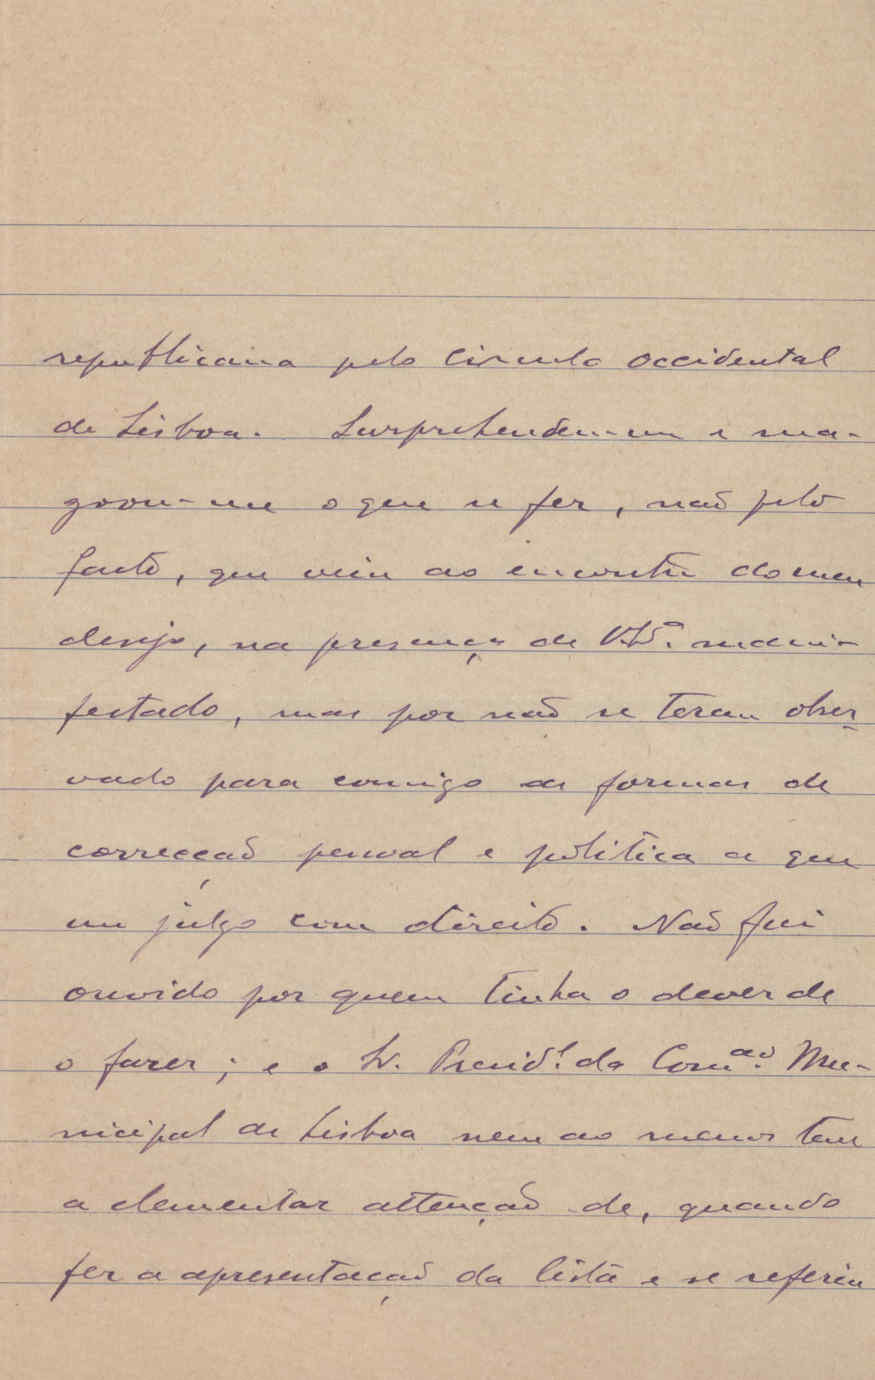 republicana pelo Circulo occidental
de Lisboa. Surprehendeu-me e ma-
goou-me o que se fez, não pelo
facto, que veiu ao encontro do meu
desejo, na presença de V. Ex.ª mani-
festado, mas por não se terem obser-
vado para comigo as formas de
correcção pessoal e politica a que
me julgo com direito. Não fui
ouvido por quem tinha o dever de
o fazer; e o Sr. Presid.e da Com.ão Mu-
nicipal de Lisboa nem ao menos tem
a elementar attenção de, quando
fez a apresentação da lista e se referiu